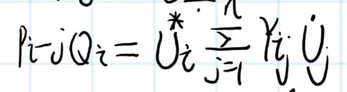 Pi-jQi = U̇*i Σ(j=1, n) Yij U̇j